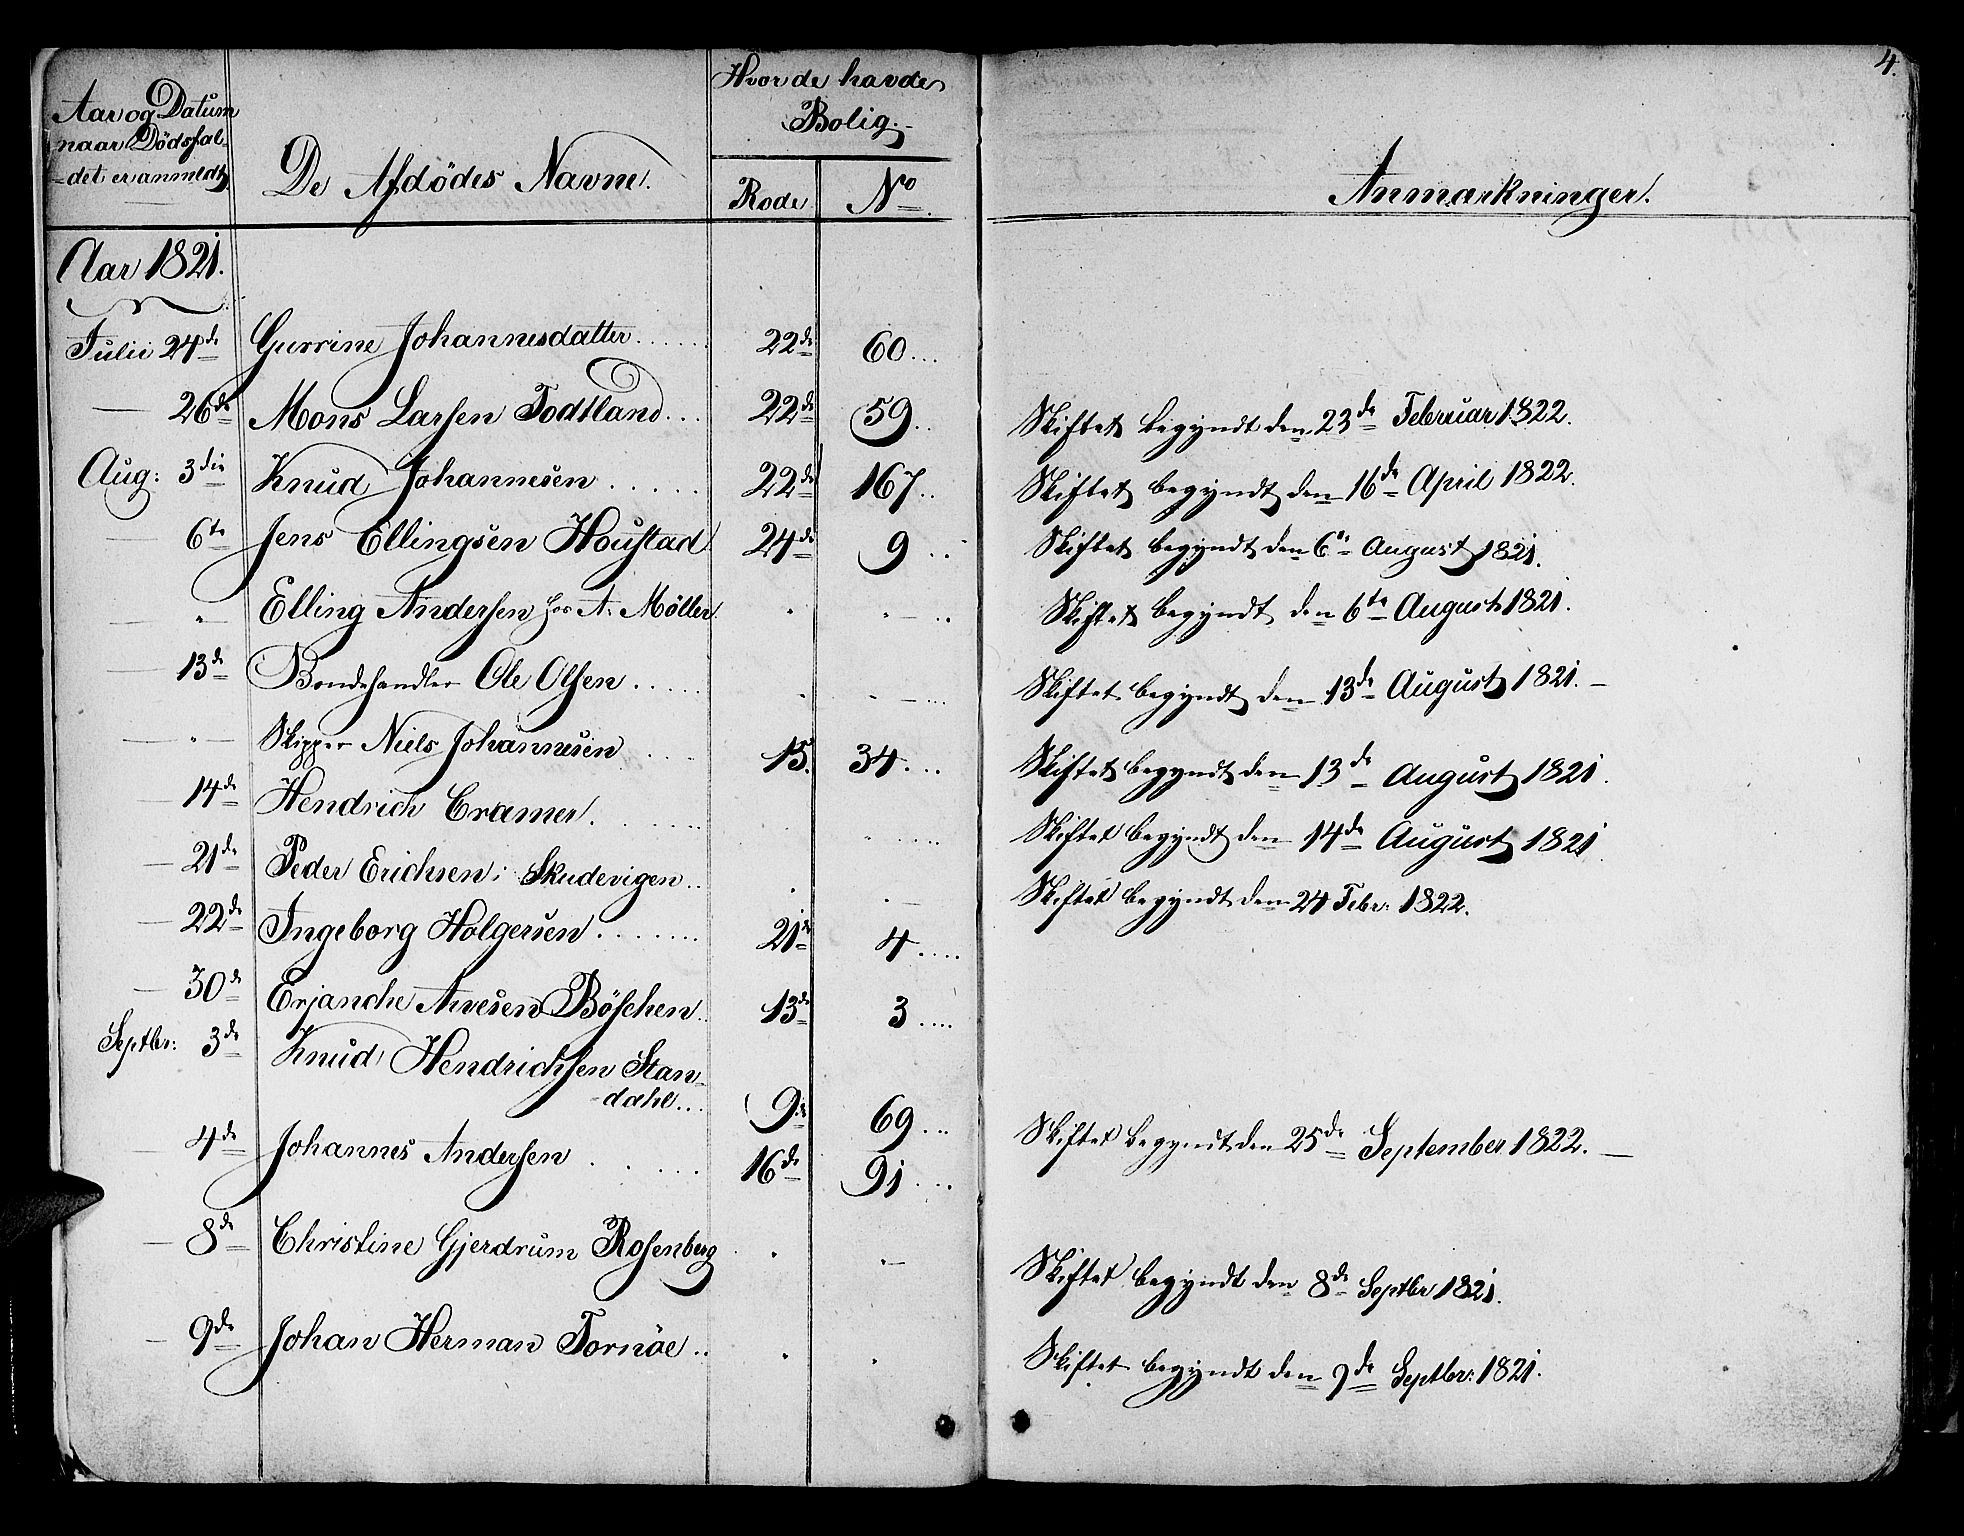 4.
Aar og Datum
naar Dödsfal-
det er anmeldt
De Afdödes Navne.
Hvor de havde
Bolig.
Rode
No
Anmærkninger.
Aar 1821.
Julii 24de Gurrine Johannesdatter...... 22de 60...
— 26de Mons Larsen Todtland... 22de 59.. Skiftet begyndt den 23de Februar 1822.
Aug: 3die Knud Johannesen ..... 22de 167.. Skiftet begyndt den 16de April 1822.
— 6te Jens Ellingsen Houstad 24de 9 .. Skiftet begyndt den 6te August 1821.
— " — Elling Andersen hos A. Möller. " " — .. Skiftet begyndt den 6te August 1821.
— 13de Bondehandler Ole Olsen..... " " — ... Skiftet begyndt den 13de August 1821. —
— " — Skipper Niels Johannesen .... 15. 34... Skiftet begyndt den 13de August 1821.
— 14de Hendrich Cramer. ..... Skiftet begyndt den 14de August 1821.
— 21de Peder Erichsen i Skudevigen.. " " — Skiftet begyndt den 24 Febr: 1822.
— 22de Ingeborg Holgersen....... 21de 4....
— 30de Erjanche Arvesen Böschen.. 13de 3....
Septbr: 3de Knud Hendrichsen Stan-
dahl... 9de 69...
— 4de Johannes Andersen ..... 16de 91... Skiftet begyndt den 25de September 1822. —
— 8de Christine Gjerdrum Rosenberg " " — Skiftet begyndt den 8de Septbr 1821.
— 9de Johan Herman Tornöe.. " " Skiftet begyndt den 9de Septbr: 1821.